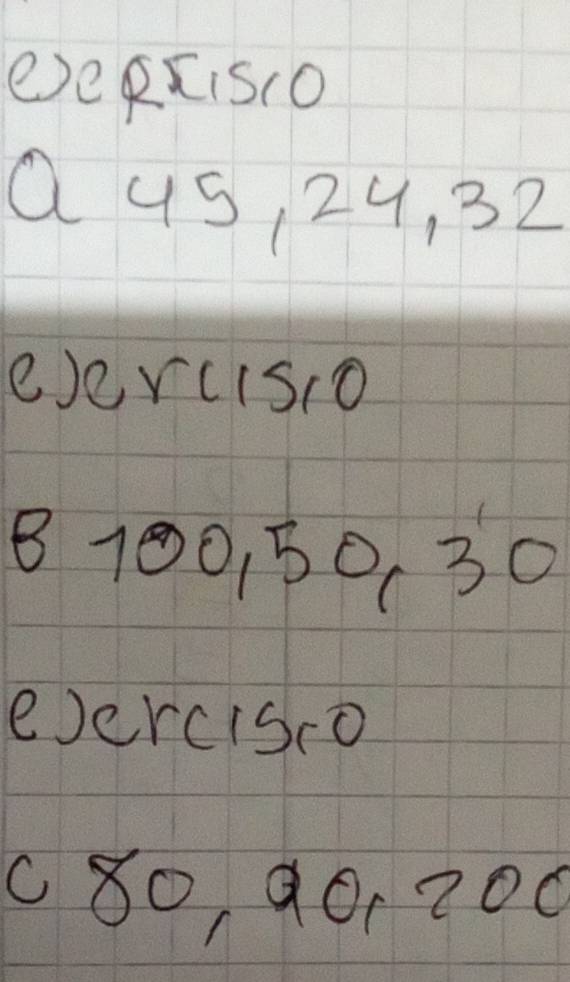 ejeRcisio
a 45, 24, 32
ejercisio
B 100, 50, 30
ejercisio
C 80, 90, 200